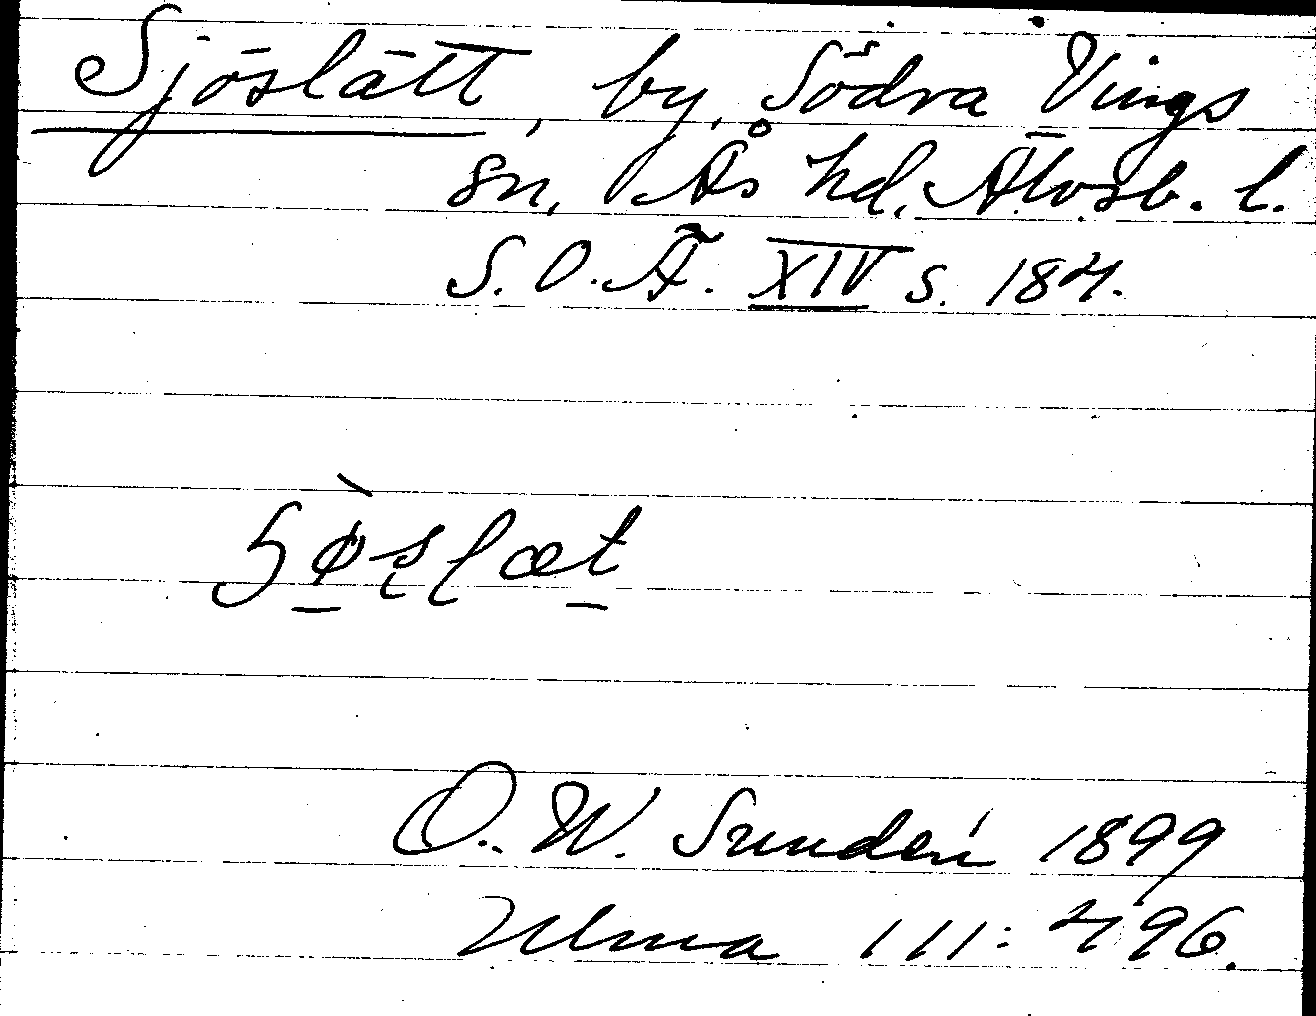 Sjöslätt, by, Södra Vings
sn, Ås hd, Älvsb. l.
S.O.Ä. XIV s. 184.
O. W. Sundén 1899
Ulma 111:496.